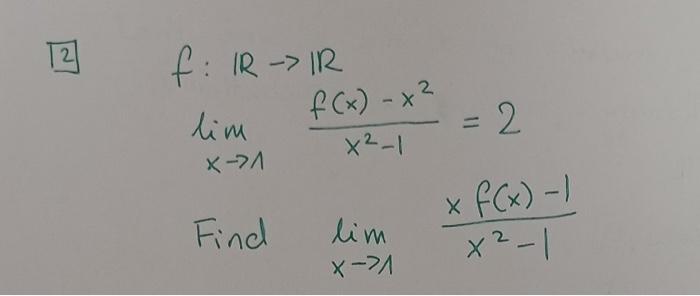 2 f: ℝ -> ℝ
lim x->1 (f(x) - x²)/(x²-1) = 2
Find lim x->1 (x f(x) - 1)/(x² - 1)